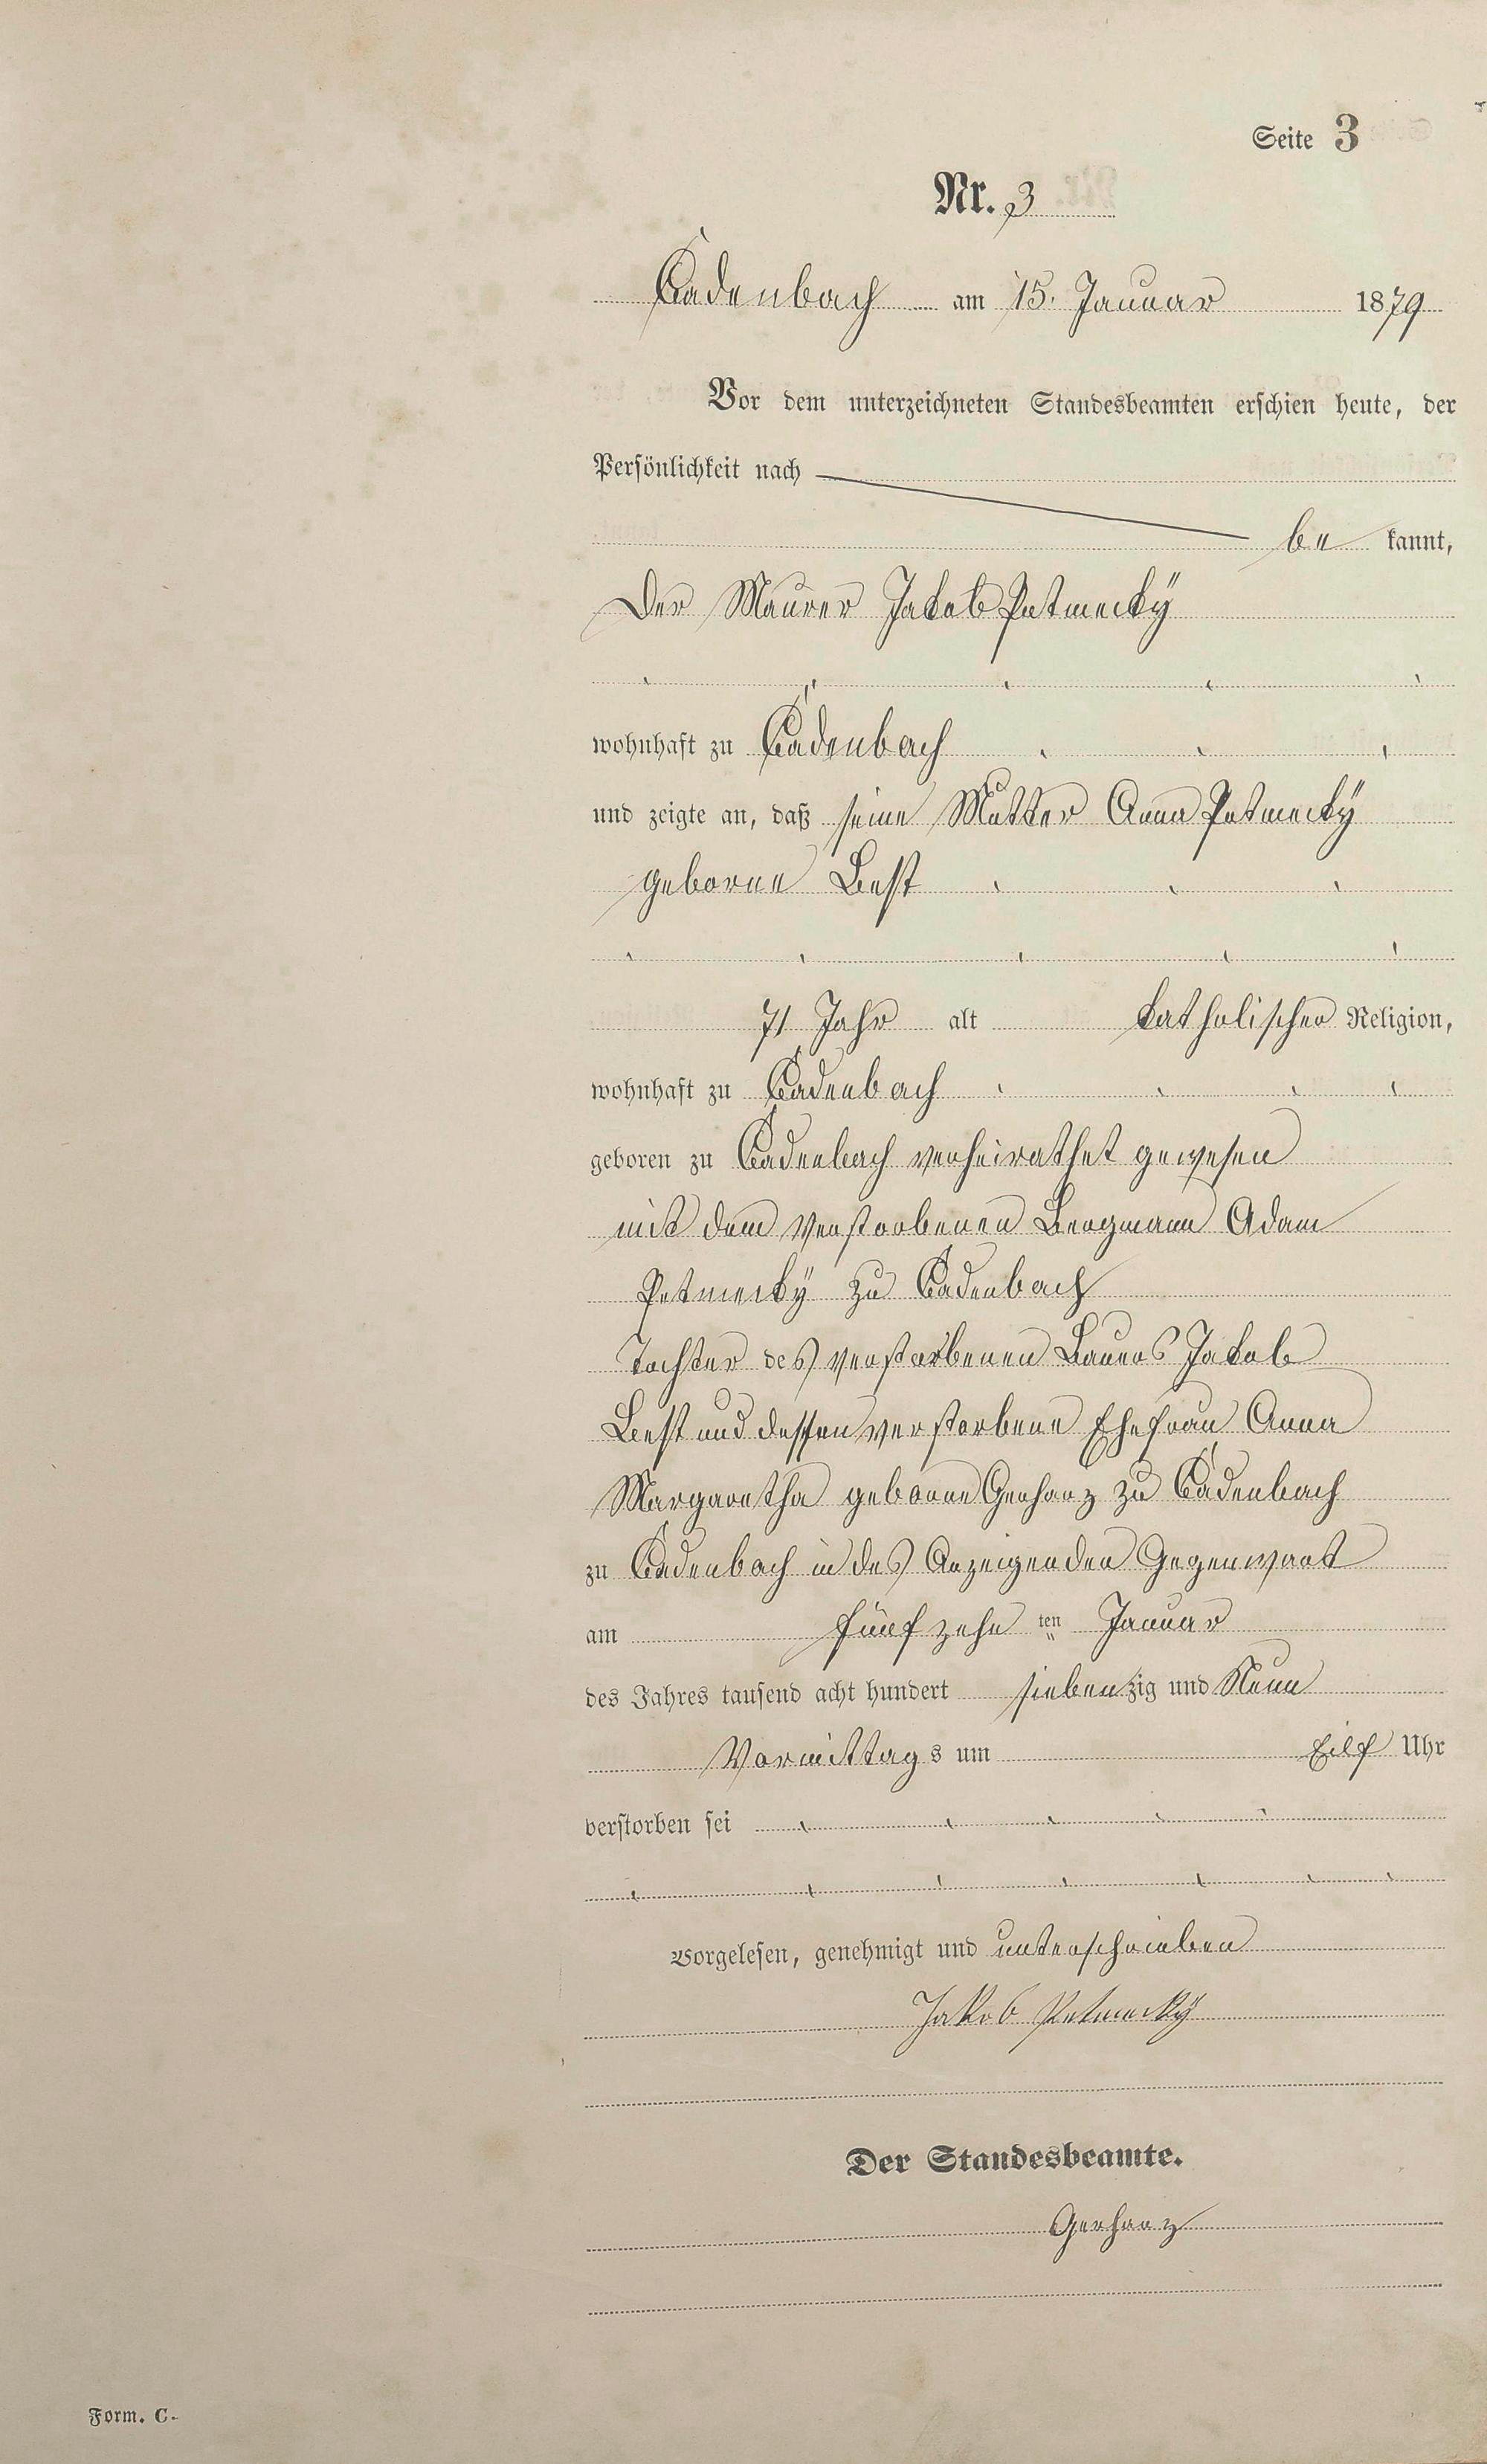 Seite 3
Nr. 3
Cadenbach am 15. Januar 1879
Vor dem unterzeichneten Standesbeamten erschien heute, der
Persönlichkeit nach
be kannt,
Der Maurer Jakob Petmecky
wohnhaft zu Cadenbach
und zeigte an, daß seine Mutter Anna Petmecky
geborne Best
71 Jahr alt katholischer Religion,
wohnhaft zu Cadenbach
geboren zu Cadenbach verheirathet gewesen
mit dem verstorbenen Bergmann Adam
Petmecky zu Cadenbach
Tochter des verstorbenen Bauers Jakob
Best und dessen verstorbene Ehefrau Anna
Margaretha geborne Gerharz zu Cadenbach
zu Cadenbach in des Anzeigenden Gegenwart
am fünfzehn ten Januar
des Jahres tausend acht hundert siebenzig und Neun
Vormittags um Eilf Uhr
verstorben sei
Vorgelesen, genehmigt und unterschrieben
Jakob Petmecky
Der Standesbeamte.
Gerharz
Form. C.